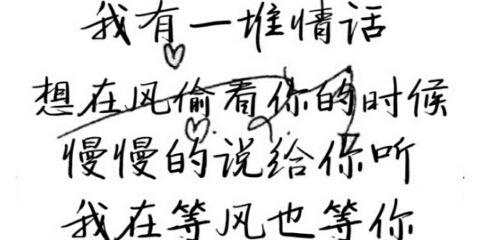 我有一堆情话
想在风偷看你的时候
慢慢的说给你听
我在等风也等你